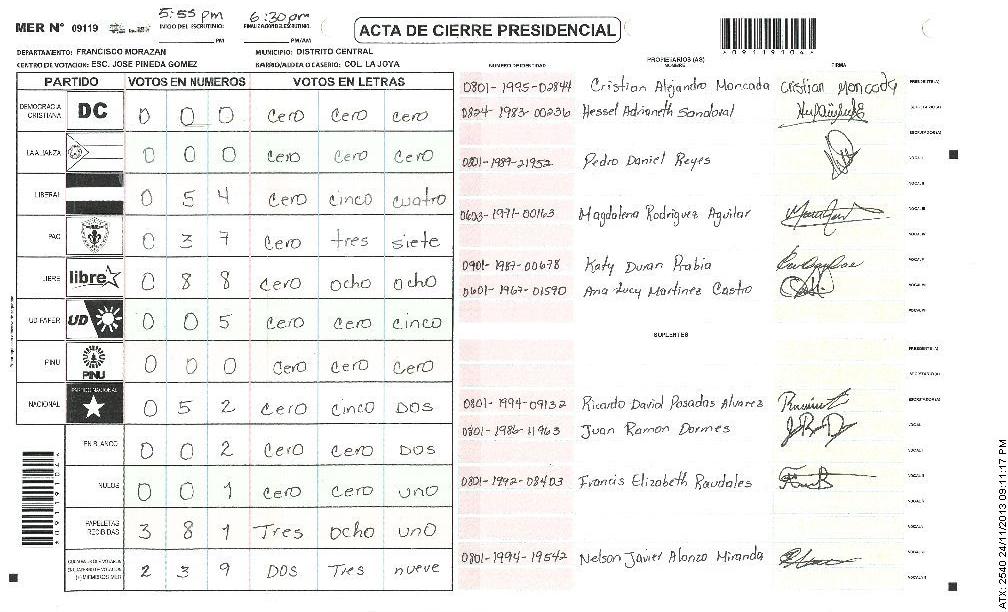 5:55 pm 6:30 pm
MER N° 09119 INICIO DEL ESCRUTINIO: PM FINALIZACION DEL ESCRUTINIO: PM/AM
ACTA DE CIERRE PRESIDENCIAL
09119104
DEPARTAMENTO: FRANCISCO MORAZAN MUNICIPIO: DISTRITO CENTRAL
CENTRO DE VOTACION: ESC. JOSE PINEDA GOMEZ BARRIO/ALDEA O CASERIO: COL. LA JOYA
NUMERO DE IDENTIDAD PROPIETARIOS (AS) NOMBRE FIRMA
PARTIDO VOTOS EN NUMEROS VOTOS EN LETRAS
DEMOCRACIA CRISTIANA DC 0 0 0 Cero Cero Cero
LA ALIANZA 0 0 0 Cero Cero Cero
LIBERAL 0 5 4 Cero cinco cuatro
PAC 0 3 7 Cero tres siete
LIBRE libre 0 8 8 Cero ocho ocho
UD FAPER UD 0 0 5 Cero Cero cinco
PINU PINU 0 0 0 Cero Cero Cero
NACIONAL PARTIDO NACIONAL 0 5 2 Cero cinco Dos
EN BLANCO 0 0 2 Cero Cero Dos
NULOS 0 0 1 Cero Cero uno
PAPELETAS RECIBIDAS 3 8 1 Tres ocho uno
(+) MIEMBROS MER 2 3 9 Dos Tres nueve
0801-1995-02844 Cristian Alejandro Moncada Cristian Moncada PRESIDENTE(A)
0824-1983-00236 Hessel Adrianeth Sandoval SECRETARIO(A)
ESCRUTADOR(A)
0801-1989-21952 Pedro Daniel Reyes VOCAL I
VOCAL II
0603-1971-00163 Magdalena Rodriguez Aguilar VOCAL III
VOCAL IV
0901-1987-00678 Katy Duran Prabia VOCAL V
0601-1967-01590 Ana Lucy Martinez Castro VOCAL VI
SUPLENTES
PRESIDENTE(A)
SECRETARIO(A)
0801-1994-09132 Ricardo David Posadas Alvarez ESCRUTADOR(A)
0801-1986-11963 Juan Ramon Dormes VOCAL I
0801-1992-08403 Francis Elizabeth Raudales
0801-1994-19542 Nelson Javier Alonzo Miranda
ATX: 2540 24/11/2013 09:11:17 PM